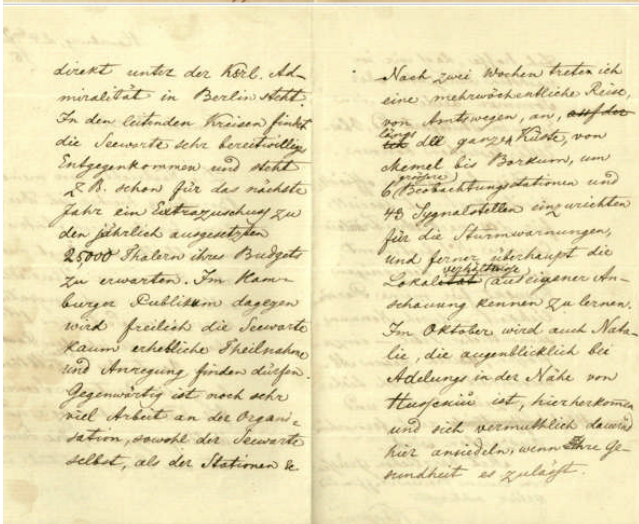 direkt unter der Kgl. Ad-
miralität in Berlin steht.
In den leitenden Kreisen findet
die Seewarte sehr bereitwilliges
Entgegenkommen und steht
z.B. schon für das nächste
Jahr ein Extrazuschuss zu
den jährlich ausgesetzten
25,000 Thalern ihres Budgets
zu erwarten. Im Ham-
burger Publikum dagegen
wird freilich die Seewarte
kaum erhebliche Theilnahme
und Anregung finden dürfen.
Gegenwärtig ist noch sehr
viel Arbeit an der Organi-
sation, sowohl der Seewarte
selbst, als der Stationen &
Nach zwei Wochen treten ich
eine mehrwöchentliche Reise,
von Amtswegen, an, auf der
längs
der ganzen Küste, von
Memel bis Borkum, um
größere
6 Beobachtungsstationen und
43 Sygnalstellen einzurichten
für die Sturmwarnungen,
und ferner überhaupt die
verhältnisse
Lokalität aus eigener An-
schauung kennen zu lernen.
Im Oktober wird auch Nata-
lie, die augenblicklich bei
Adelungs in der Nähe von
ist, hierherkommen
und sich vermuthlich dauernd
hier ansiedeln, wenn Ihre Ge-
sundheit es zulässt.